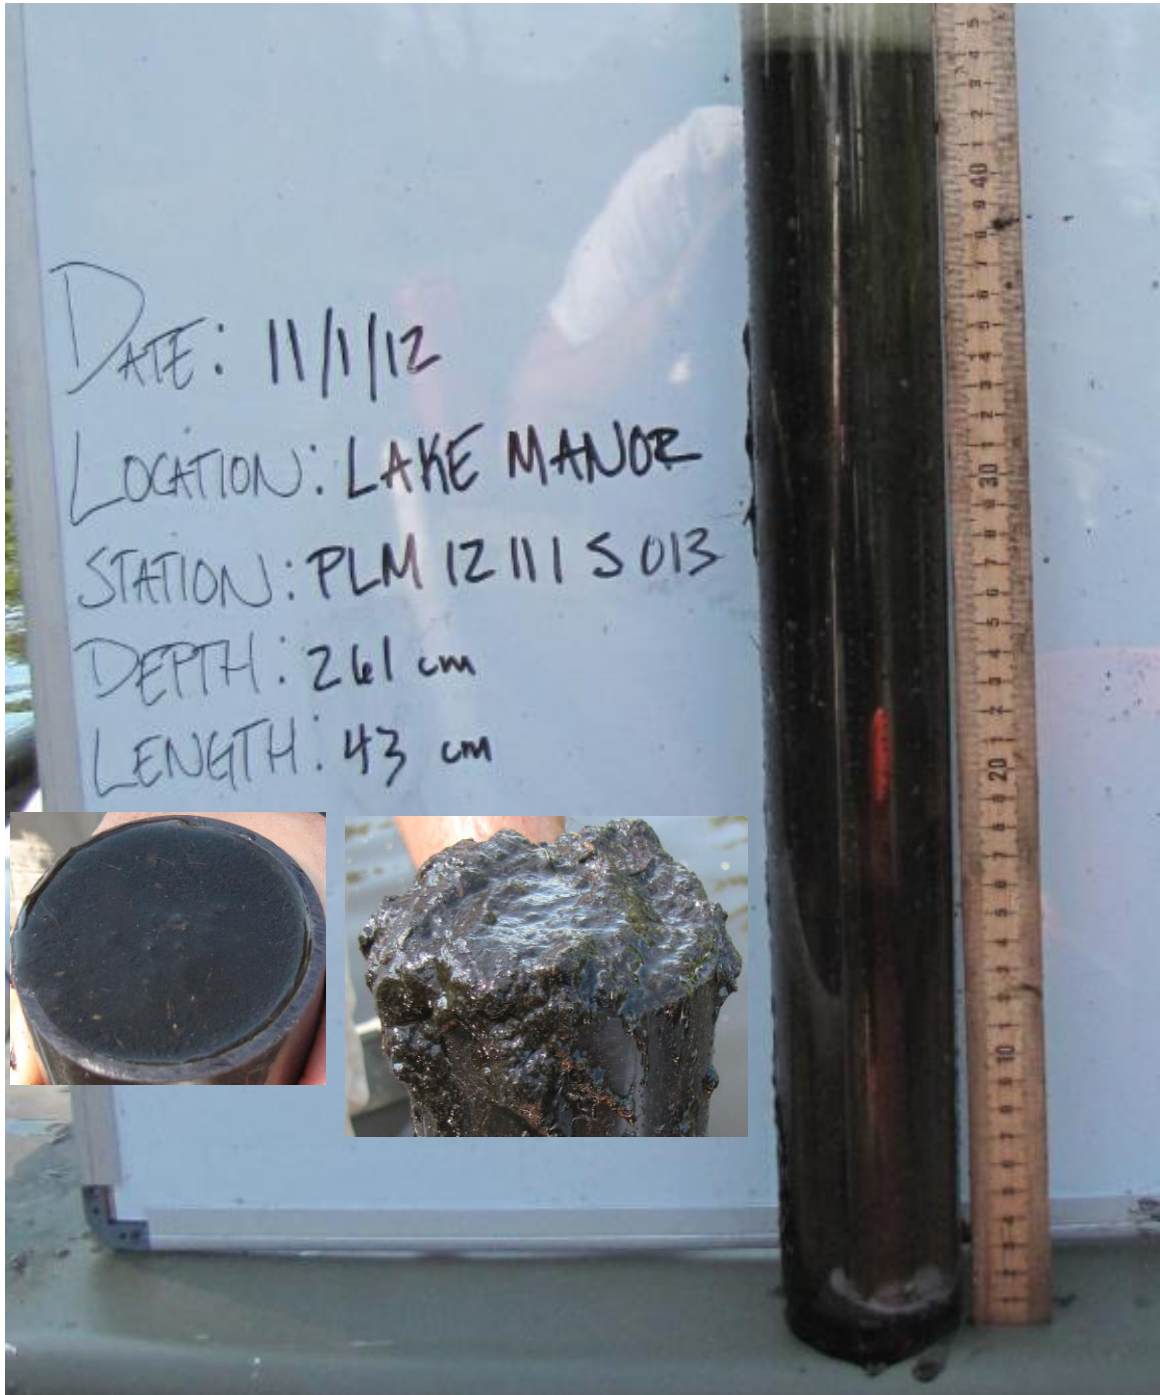 DATE: 11/1/12
LOCATION: LAKE MANOR
STATION: PLM 12 11 1 S 013
DEPTH: 261 cm
LENGTH: 43 cm
40
30
20
10